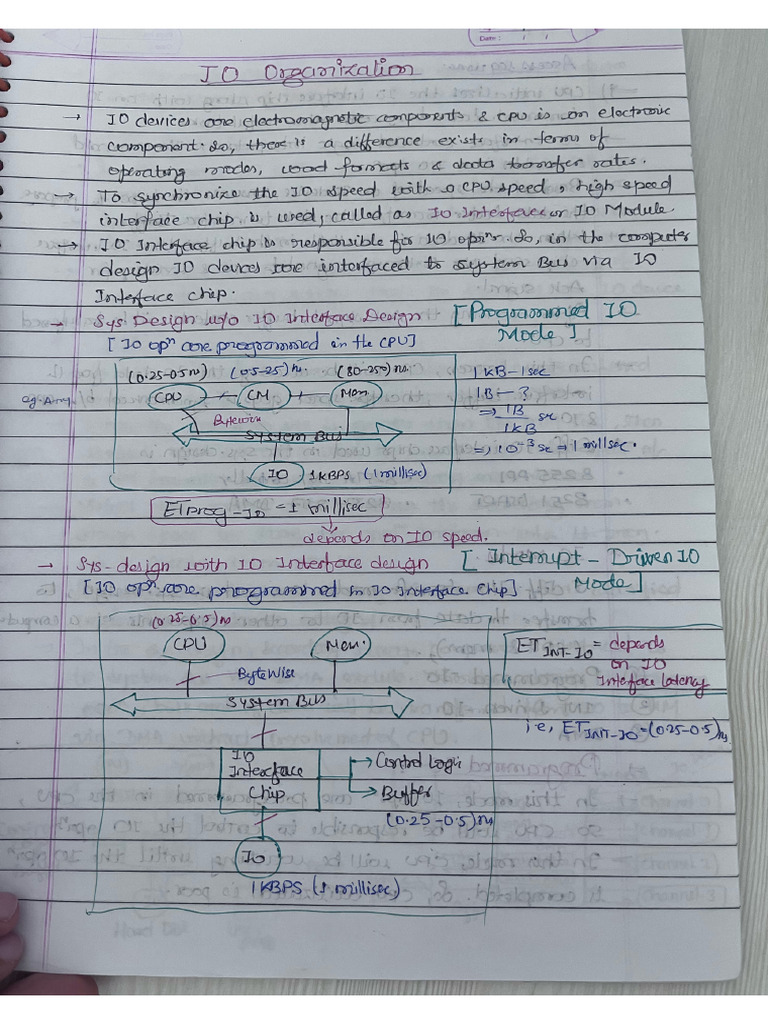 Date :
IO Organization
→ IO devices are electromagnetic components & CPU is an electronic
component. So, there is a difference exists in terms of
operating modes, word formats & data transfer rates.
→ To synchronize the IO speed with a CPU speed, high speed
interface chip is used, called as IO Interface or IO Module
→ IO Interface chip is responsible for IO oprⁿ So, in the computer
design IO devices are interfaced to System Bus via IO
Interface chip.
→ Sys Design w/o IO Interface Design [Programmed IO
Mode]
[IO opⁿ are programmed in the CPU]
(0.25-0.5n) (0.5-25)ns. (80-250)ns.
CPU CM Mem
Bytewise
System Bus
IO 1KBPS (1millisec)
1KB-1sec
1B - ?
⇒ 1B/1KB sec
⇒ 10⁻³ se ⇒ 1 millsec.
ETprog-IO = 1 millisec
depends on IO speed.
→ Sys-design with IO Interface design [Interrupt-Driven IO
Mode]
[IO opⁿ are programmed in IO Interface Chip]
(0.25-0.5)n
CPU Mem.
ByteWise
System Bus
IO
Interface
Chip
→ Control Logic
→ Buffer
(0.25-0.5)ns
IO
1KBPS (1 millisec)
ET INT-IO = depends
on IO
Interface latency
i.e, ET INT-IO = (0.25-0.5)ns